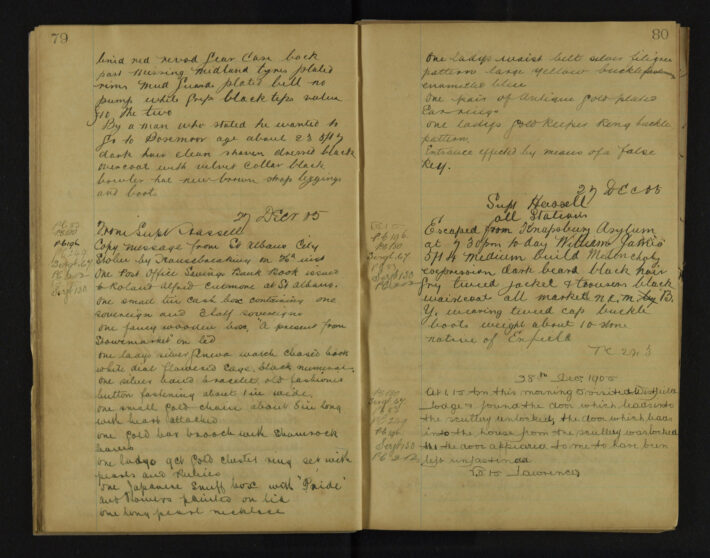 79
lined red revod Gear Case back
part missing Midland tyres plated
rims Mud Guards plated bell no
pump white grips black tips value
£10 the two
By a man who stated he wanted to
go to Boxmoor age about 23 5ft 7
dark hair clean shaven dressed black
overcoat with velvet collar black
bowler hat new brown strap leggings
and boots
27 Decr 05
From Supt Hassell
Copy message from St Albans City
Stolen by housebreaking on inst
One Post Office Savings Bank Book issued
to Roland Alfred at St Albans.
One small tin cash box containing one
sovereign and 2 half sovereigns
One fancy wooden box, "A present from
Stowmarket" on lid
One ladys silver Geneva watch chased back
white dial flowered cage, black numerals,
One silver band bracelet old fashioned
button fastening about 1 in wide,
One small gold chain about 8 in long
with heart attached
One gold bar brooch with Shamrock
leaves
One ladys 9ct Gold cluster ring set with
pearls and Rubies
One Japanese Snuff box with "Pride"
and flowers painted on lid
One long pearl necklace
80
One ladys waist belt silver filigree
pattern large yellow buckle
enamelled blue
One pair of Antique Gold plated
Ear rings
One ladys Gold Keeper Ring buckle
pattern.
Entrance effected by means of a false
Key.
27 Dec 05
Supt Hassell
all Stations
Escaped from Napsbury Asylum
at 7 30 pm to day William
5ft 4 medium build Melancholy
expression dark beard black hair
Grey tweed jacket & trousers black
waistcoat all marked N.C.M. by B.
Y. wearing tweed cap buckle
boots weight about 10 stone
native of Enfield
28th Dec 1905
At 1.15 am this morning I visited
Lodge & found the door which leads into
the scullery unlocked, the door which leads
into the house from the scullery was locked
the door appeared to me to have been
left unfastened
Lawrence